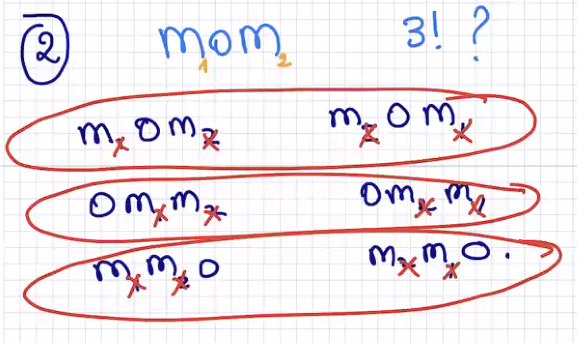 2 mom 3! ?
1 2
m1 o m2 m2 o m1
o m1 m2 o m2 m1
m1 m2 o m2 m1 o.